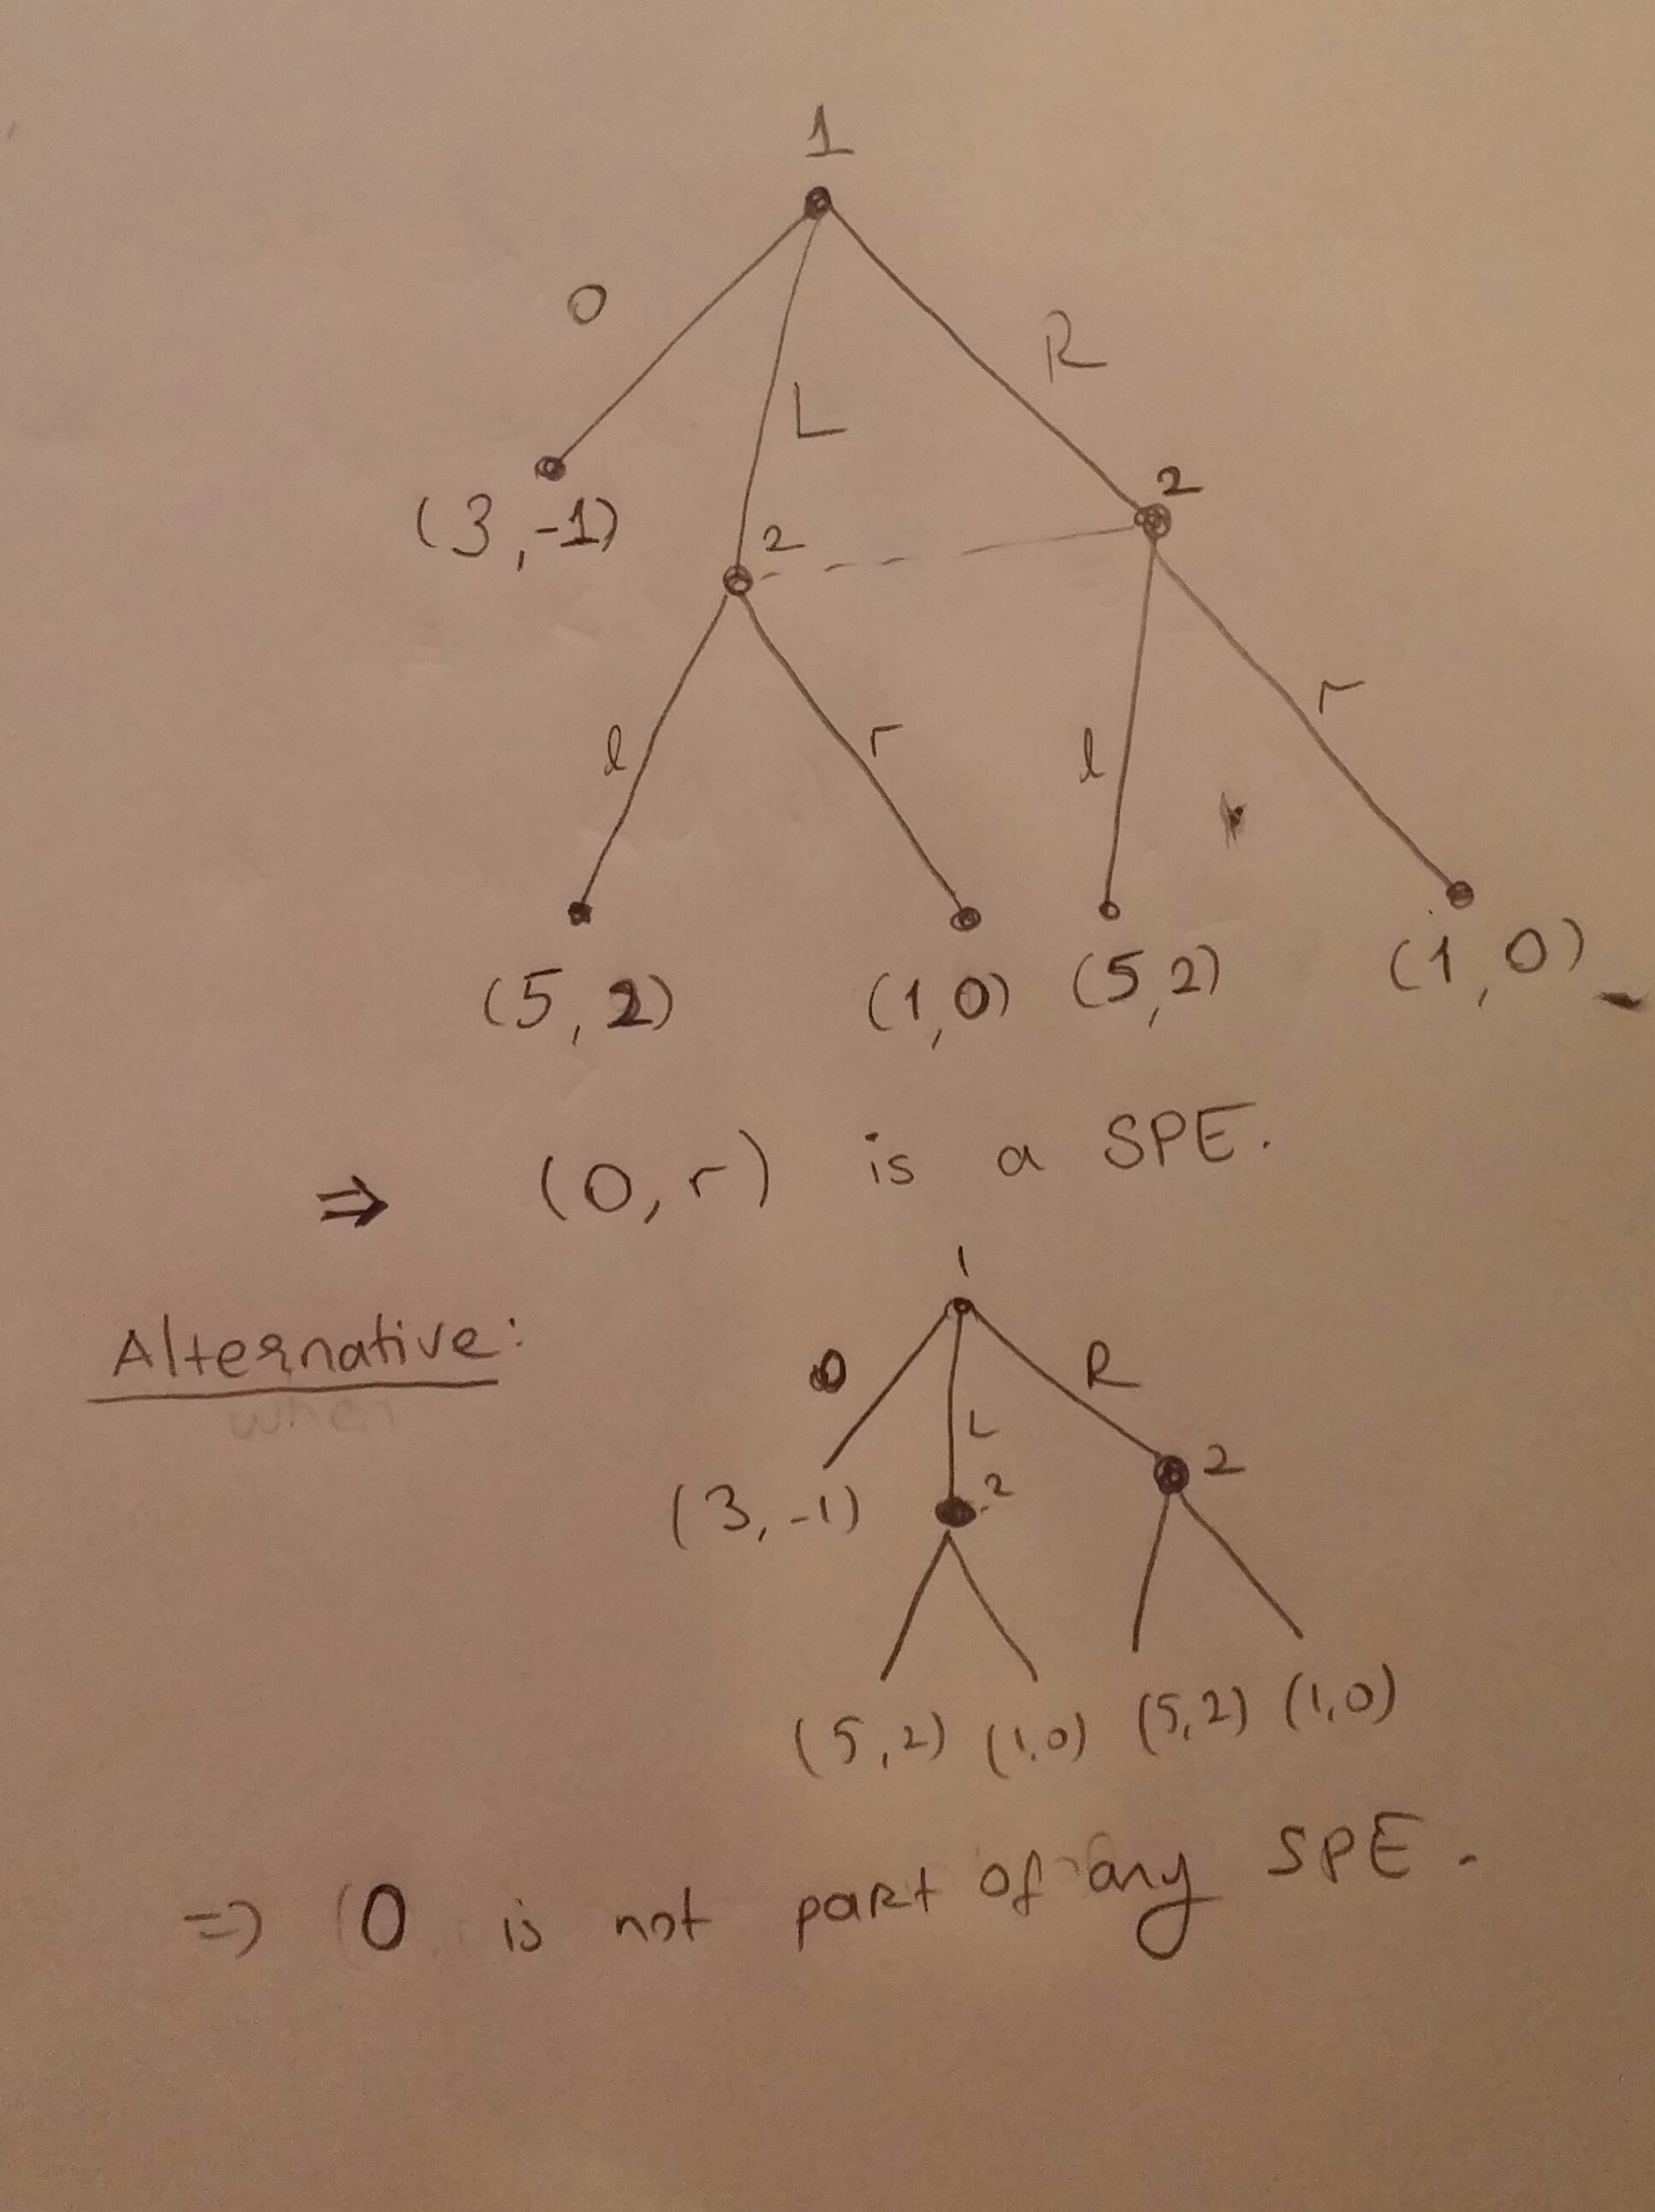 1
O
R
L
2
(3,-1)
2
l r l r
(5,2) (1,0) (5,2) (1,0)
⇒ (O,r) is a SPE.
1
Alternative:
O R
L
2
2
(3,-1)
(5,2) (1,0) (5,2) (1,0)
⇒ O is not part of any SPE.